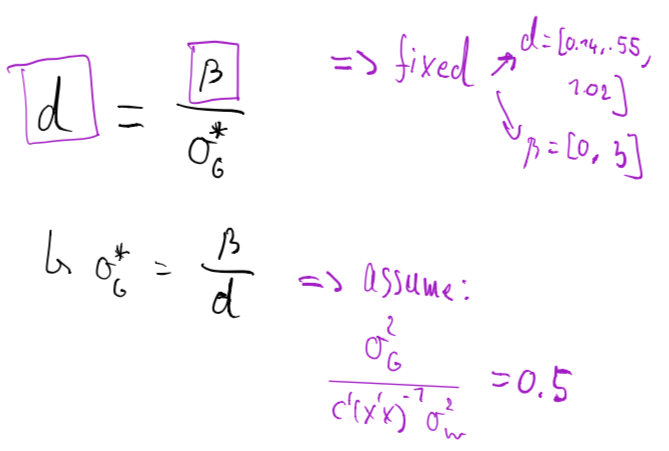 d = β / σ*_G => fixed ↗ d=[0.14, .55, 1.02]
↘ β=[0, 3]
↳ σ*_G = β / d => assume:
σ²_G / c'(x'x)⁻¹ σ²_w = 0.5